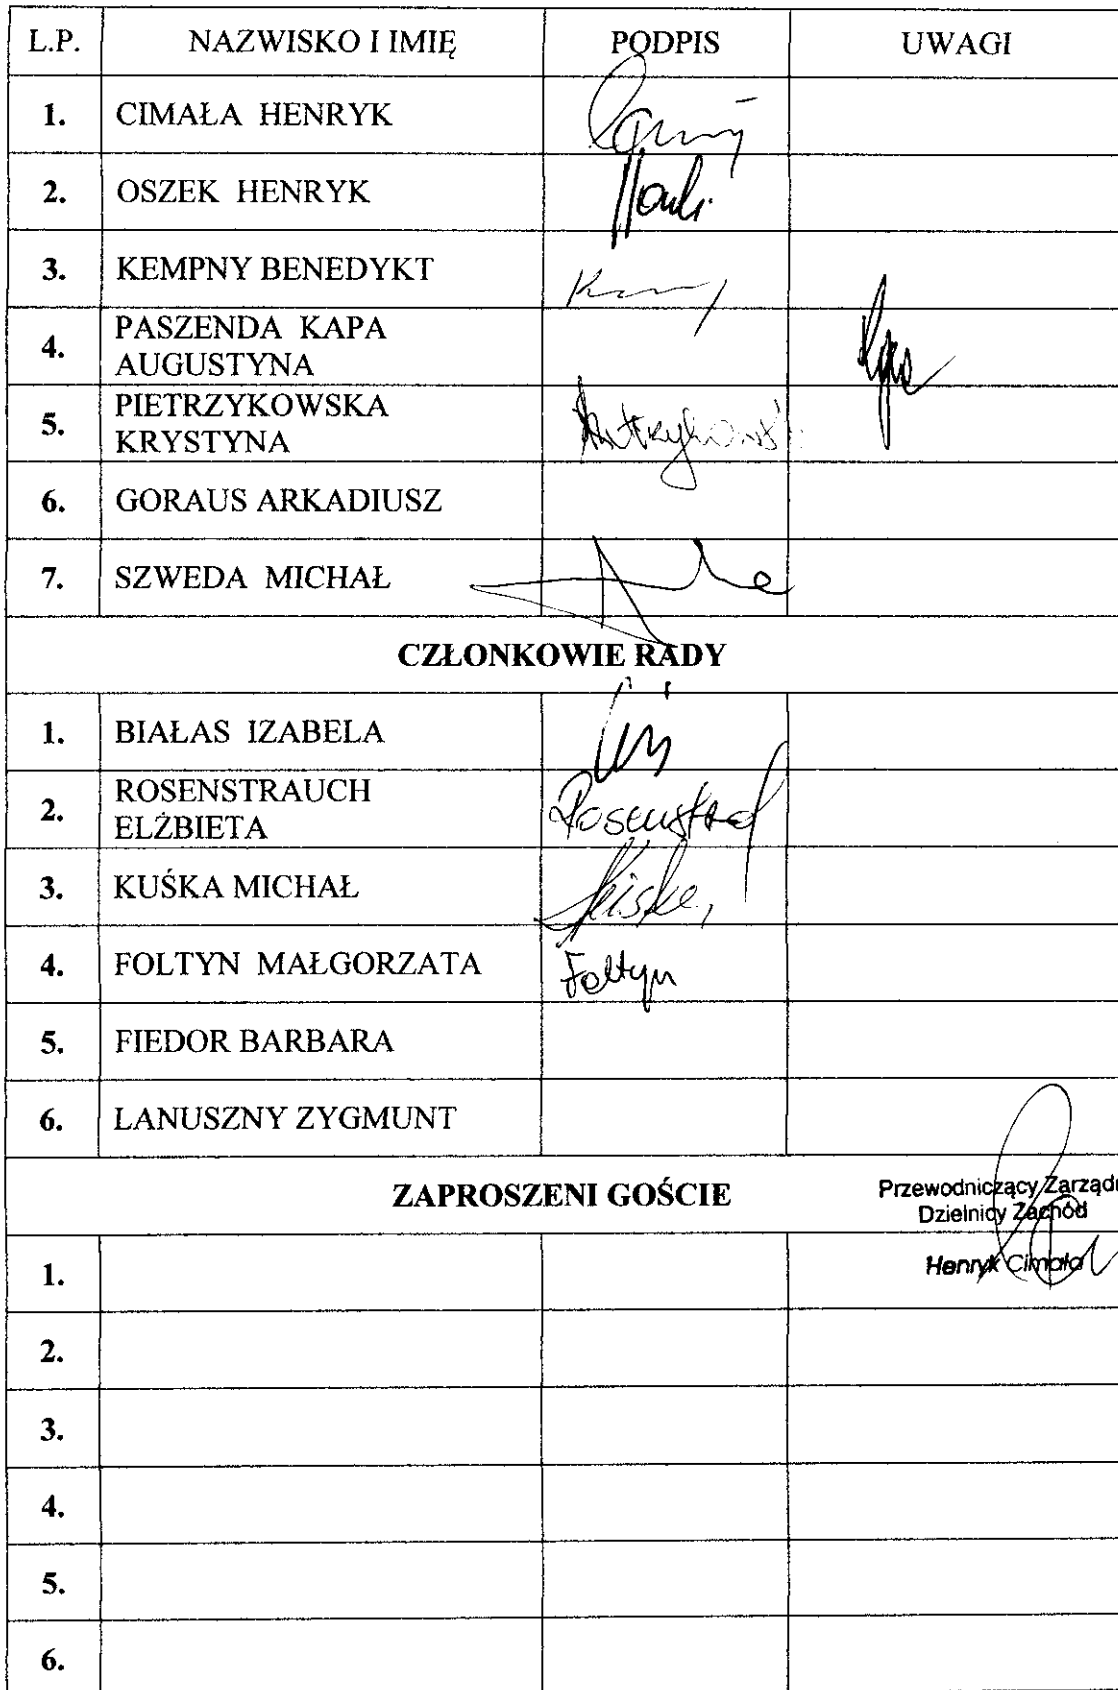 L.P. NAZWISKO I IMIĘ PODPIS UWAGI
1. CIMAŁA HENRYK
2. OSZEK HENRYK
3. KEMPNY BENEDYKT
4. PASZENDA KAPA
AUGUSTYNA
5. PIETRZYKOWSKA
KRYSTYNA
6. GORAUS ARKADIUSZ
7. SZWEDA MICHAŁ
CZŁONKOWIE RADY
1. BIAŁAS IZABELA
2. ROSENSTRAUCH
ELŻBIETA
3. KUŚKA MICHAŁ
4. FOLTYN MAŁGORZATA Foltyn
5. FIEDOR BARBARA
6. LANUSZNY ZYGMUNT
ZAPROSZENI GOŚCIE
Przewodniczący Zarządu
Dzielnicy Zachód
Henryk Cimała
1.
2.
3.
4.
5.
6.